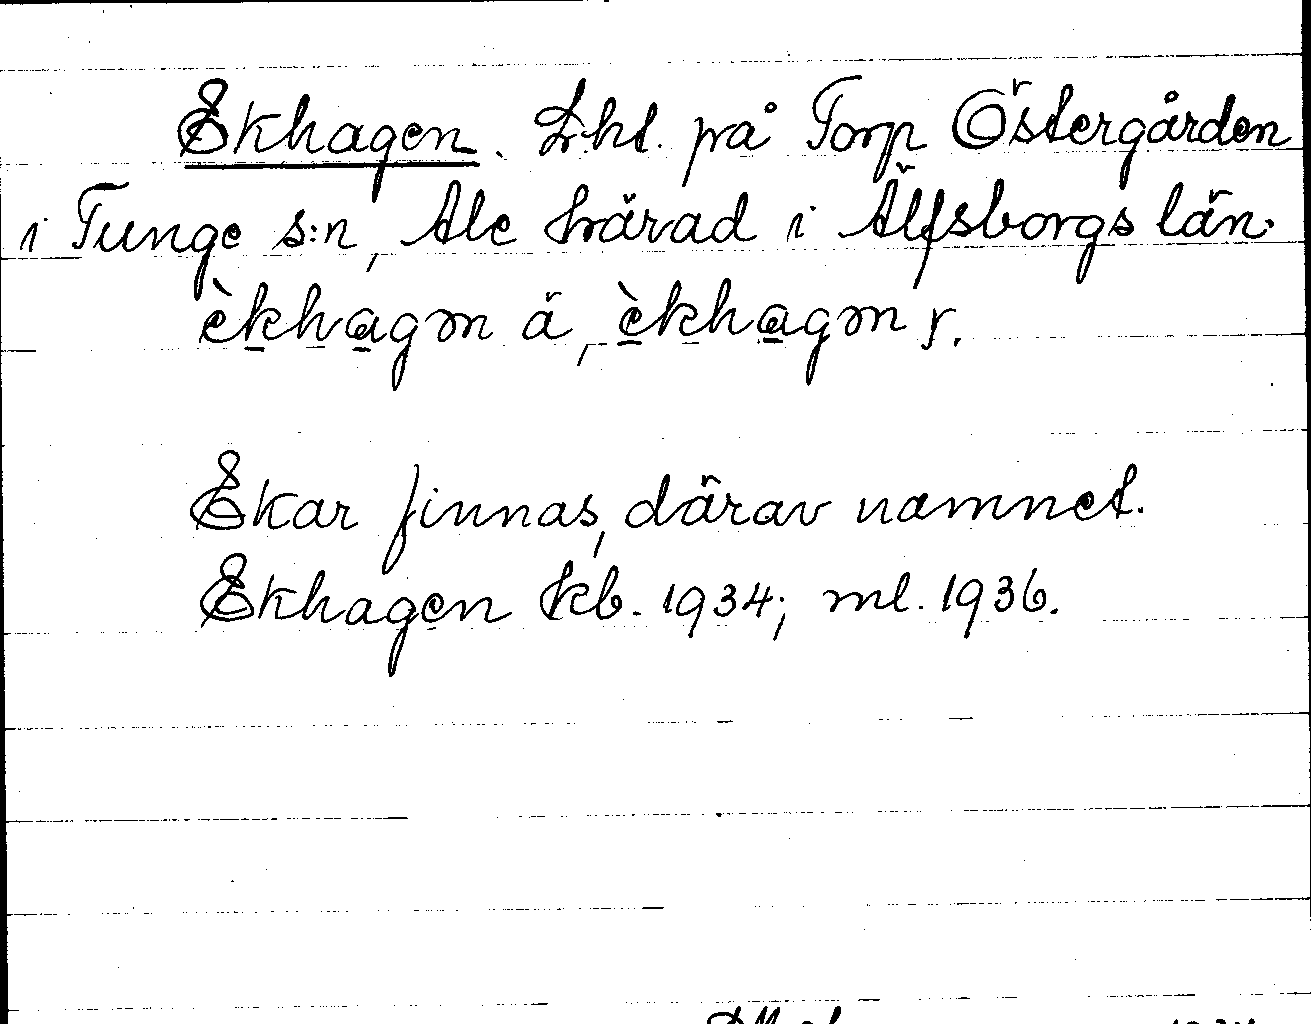 Ekhagen. Lht. på Torp Östergården
i Tunge s:n, Ale härad i Älfsborgs län.
èkhagən ä, èkhagən y.
Ekar finnas, därav namnet.
Ekhagen kb. 1934; ml. 1936.